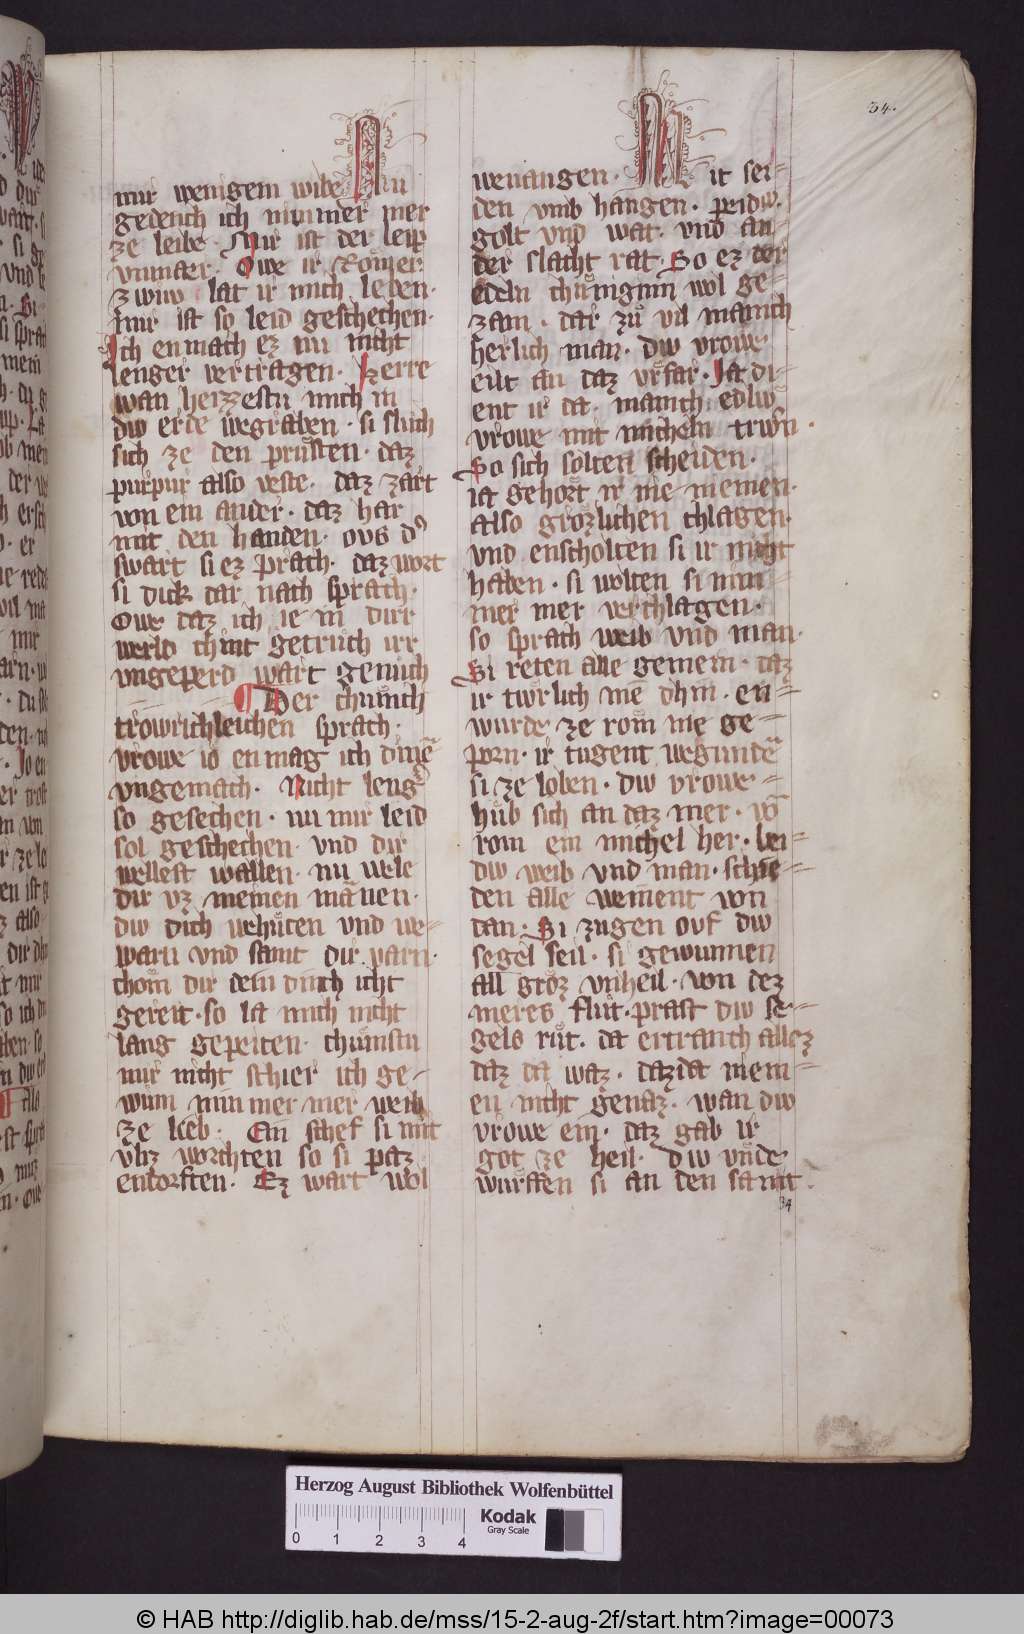 34.
mir wenigem wibe Nu
gedench ich nimmer mer
ze leibe. Mir ist der leip
vnmær. Owe ir Romer
zwiw lat ir mich leben.
mir ist so leid geschechen.
Ich enmach ez nu nicht
lenger vertragen. Herre
wan hezzestu mich in
diw erde wegraben. si sluch
sich ze den prusten. daz
purpur also veste. daz zart
von ein ander. daz har
mit den handen. ovs
swart si ez prach. daz wort
si dick dar nach sprach.
Owe daz ich ie in dirr
werld chint getruch irr
vngeperd wart genuch
Der chůnch
trowrichleichen sprach.
vrowe io enmag ich dinē
vngemach. Nicht leng
so gesechen. nu mir leid
sol geschechen. vnd dir
wellest wallen. nu wele
dir vz meinen mannen.
diw dich wehůten vnd we=
warn vnd samt dir varn.
chom dir dein dinch icht
gereit. so la mich nicht
lang gepeiten. chůmstu
mir nicht schier ich ge=
winn nimmer mer weib
ze lieb. Ein schef si mit
vliz worchten so si paz
endorften. Ez wart wol
wevangen. Mit sei=
den vmb hangen. peidiw.
golt vnd wat. vnd an=
der slacht rat. So ez der
edeln chůniginn wol ge=
zam. dar zů vil manich
herlich man. diw vrowe
eilt an daz vrfar. Jr di=
ent ir da. manich edliw
vrowe mit micheln triwn.
So sich solten scheiden.
ia gehort ir nie niemen.
also grozlichen chlagen.
vnd enscholten si ir nicht
haben. si wolten si nim=
mer mer verchlagen.
so sprach weib vnd man.
Si reten alle gemein. daz
ir twrlich nie dhein. en=
wurde ze rom nie ge=
porn. ir tugent wegundē
si ze loben. diw vrowe=
hůb sich an daz mer. vō
rom ein michel her. bei=
diw weib vnd man. schie=
den alle weinent von
dan. Si zugen ovf diw
segel seil. si gewunnen
all groz vnheil. von dez
meres flůt. prast diw se=
gels růt. da ertranch allez
daz da waz. daz da niem=
en nicht genaz. wan diw
vrowe ein. daz gab ir
got ze heil. diw vnde
wurffen si an den samt.
34
Herzog August Bibliothek Wolfenbüttel
Kodak
Gray Scale
0 1 2 3 4
© HAB http://diglib.hab.de/mss/15-2-aug-2f/start.htm?image=00073